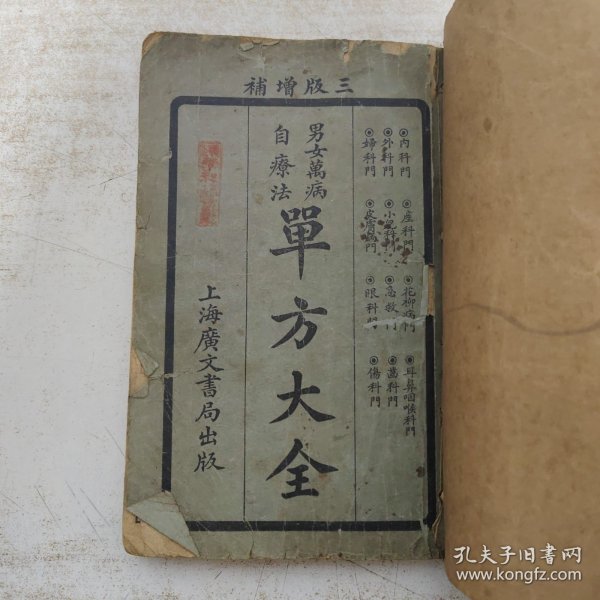 三版增補
◉內科門
◉外科門
◉婦科門
◉產科門
◉小兒科門
◉皮膚病門
◉花柳病門
◉急救門
◉眼科門
◉耳鼻咽喉科門
◉齒科門
◉傷科門
男女萬病
自療法
單方大全
上海廣文書局出版
孔夫子旧书网
www.kongfz.com